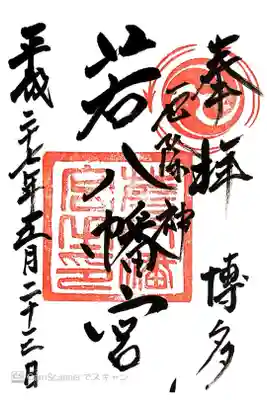 奉拝
博多
厄除神
若八幡宮
平成二十七年五月二十三日
若八幡宮之印
CamScannerでスキャン